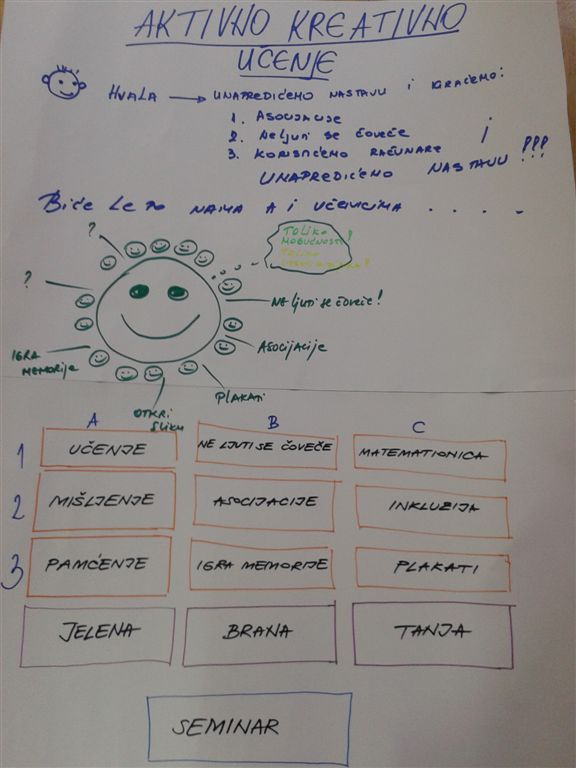 AKTIVNO KREATIVNO
UČENJE
HVALA → UNAPREDIĆEMO NASTAVU I IGRAĆEMO:
1. ASOCIJACIJE
2. NE LJUTI SE ČOVEČE
3. KORISTIĆEMO RAČUNARE I
UNAPREDIĆEMO NASTAVU !!!
BIĆE LEPO NAMA A I UČENICIMA . . . . .
?
TOLIKO
MOGUĆNOSTI!
TOLIKO
?
NE LJUTI SE ČOVEČE!
ASOCIJACIJE
IGRA
MEMORIJE
PLAKATI
OTKRI
SLIKU
A B C
1 UČENJE NE LJUTI SE ČOVEČE MATEMATIONICA
2 MIŠLJENJE ASOCIJACIJE INKLUZIJA
3 PAMĆENJE IGRA MEMORIJE PLAKATI
JELENA BRANA TANJA
SEMINAR